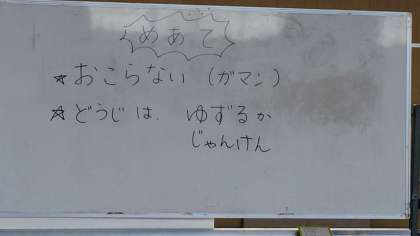 めあて
☆おこらない（ガマン）
☆どうじは、ゆずるか
じゃんけん